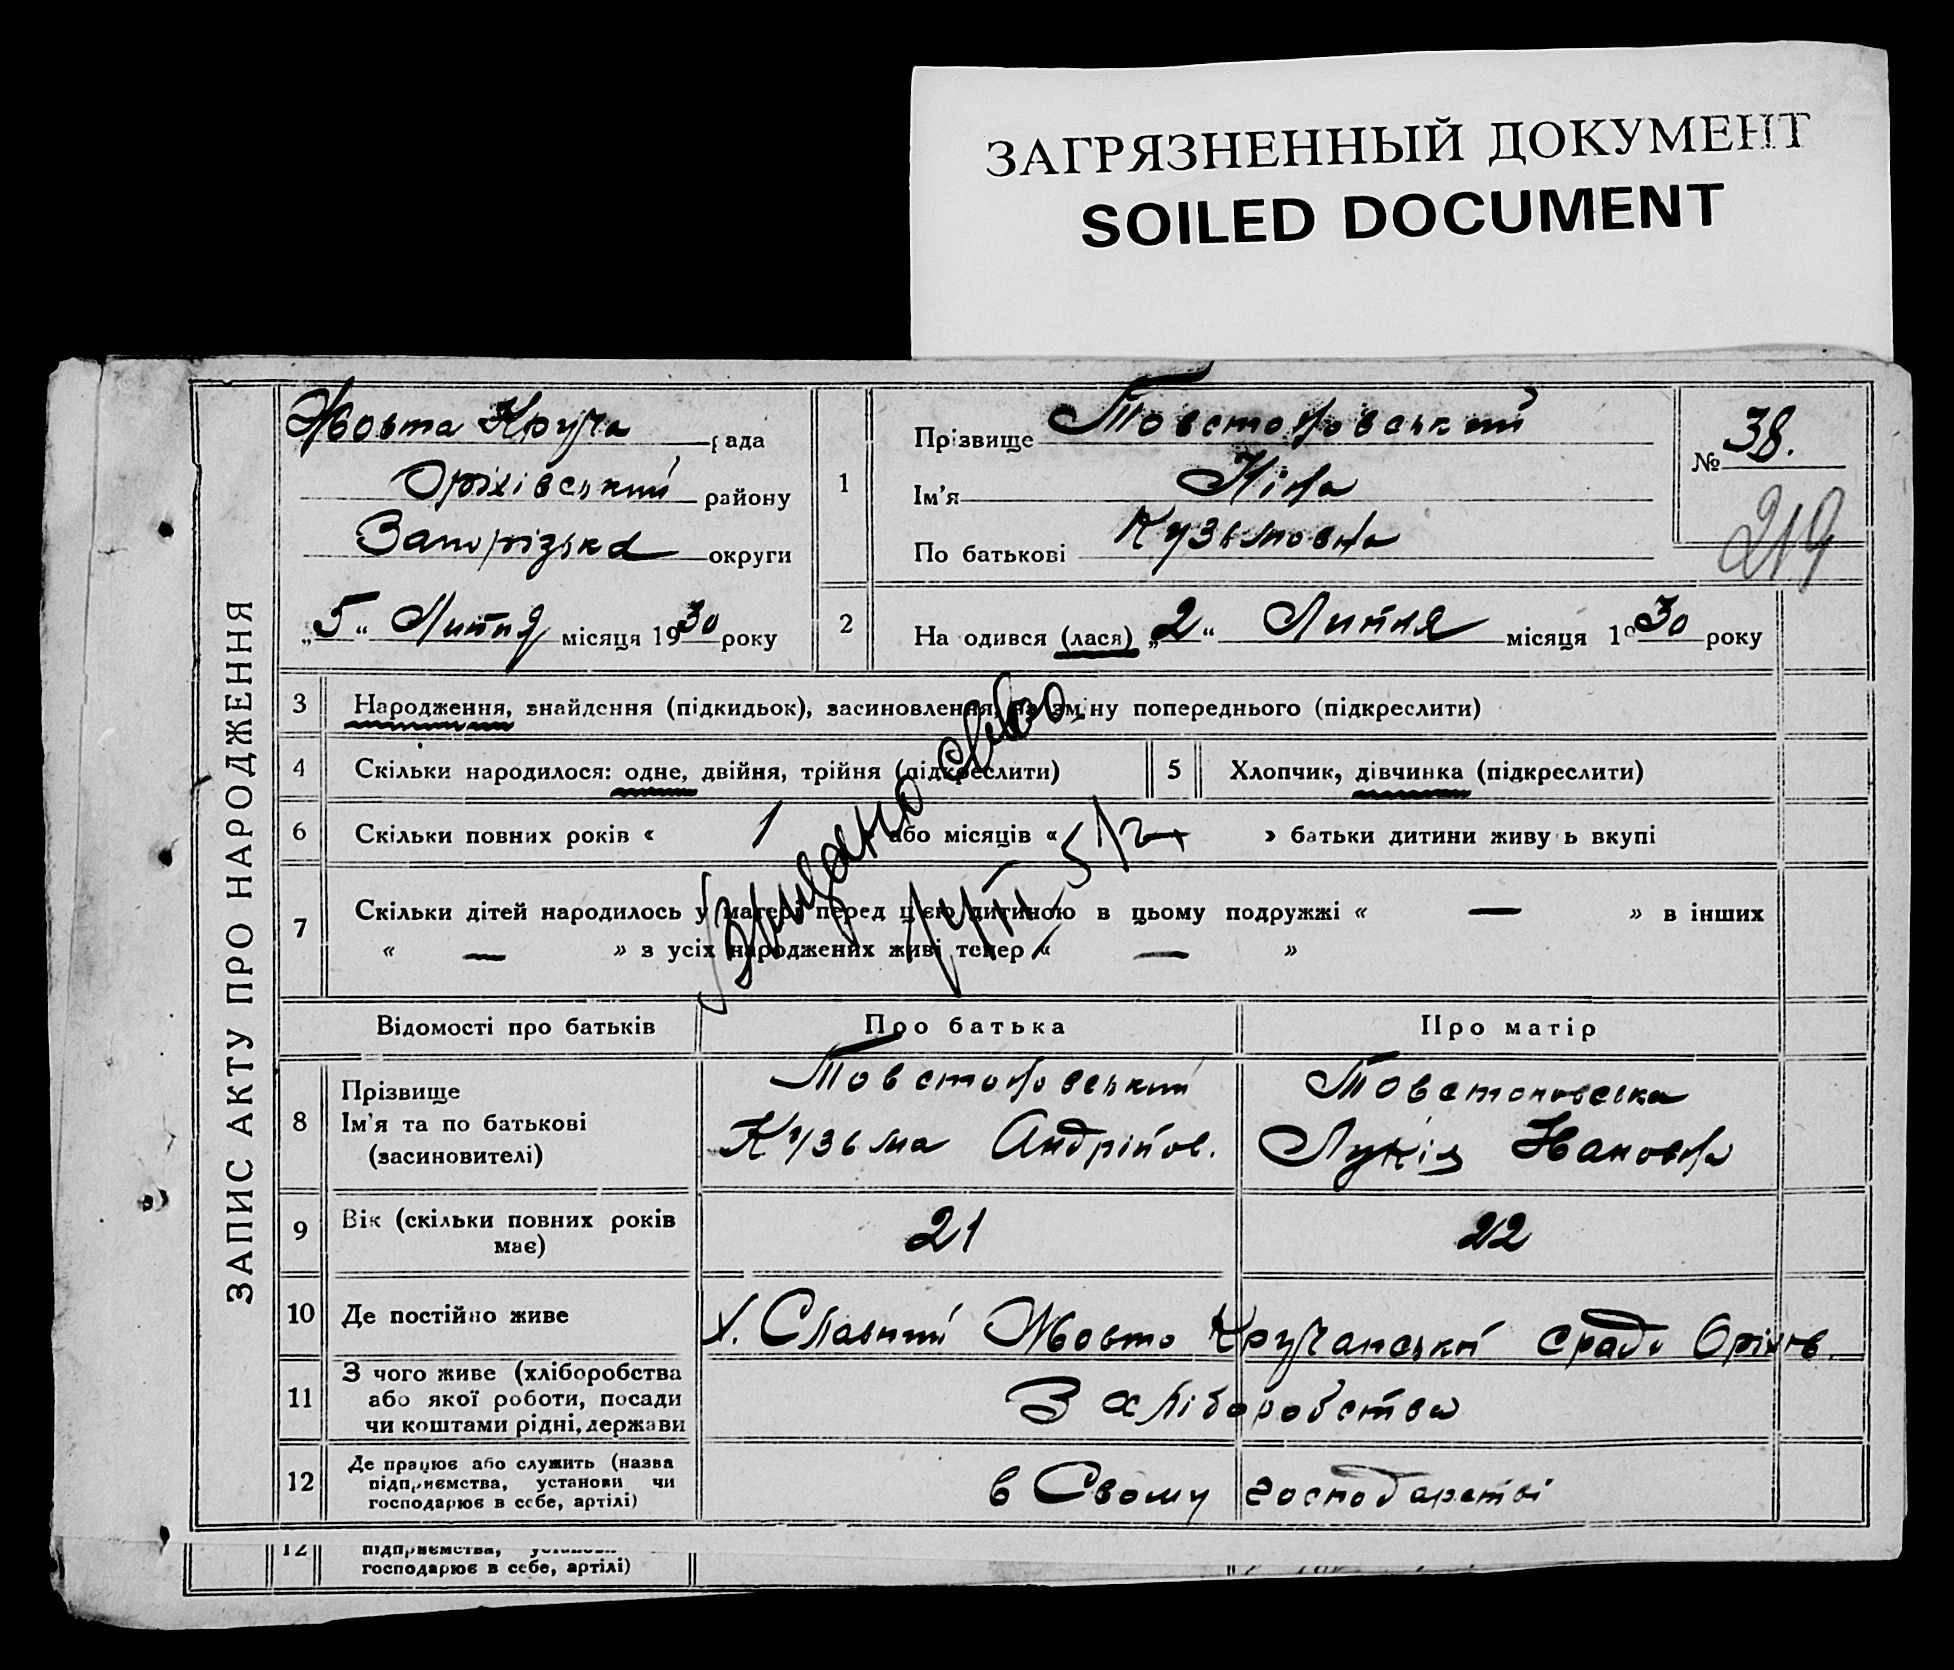 ЗАГРЯЗНЕННЫЙ ДОКУМЕНТ
SOILED DOCUMENT
ЗАПИС АКТУ ПРО НАРОДЖЕННЯ
Жовта Круча рада
Оріхівський району
Запорізька округи
„5“ Липня місяця 1930 року
1
Прізвище Товстоновський
Ім’я Ніна
По батькові Кузьмовна
№ 38.
219
2 На одився (лася) „2“ Липня місяця 1930 року
3 Народження, знайдення (підкидьок), засиновлення, на зміну попереднього (підкреслити)
4 Скільки народилося: одне, двійня, трійня (підкреслити) 5 Хлопчик, дівчинка (підкреслити)
6 Скільки повних років « 1 або місяців « » батьки дитини живуть вкупі
7 Скільки дітей народилось у матері перед цією дитиною в цьому подружжі « — » в інших
« — » з усіх народжених живі тепер « — »
Відомості про батьків Про батька Про матір
8 Прізвище Ім’я та по батькові (засиновителі)
Товстоновський Товстоновська
Кузьма Андрійов. Лукія Івановна
9 Вік (скільки повних років має) 21 22
10 Де постійно живе х. Славний Жовто Кручанської сради Оріхів.
11 З чого живе (хліборобства або якої роботи, посади чи коштами рідні, держави З хліборобства
12 Де працює або служить (назва підприємства, установи чи господарює в себе, артілі) в Свому господарстві
12 підприємства,
господарює в себе, артілі)